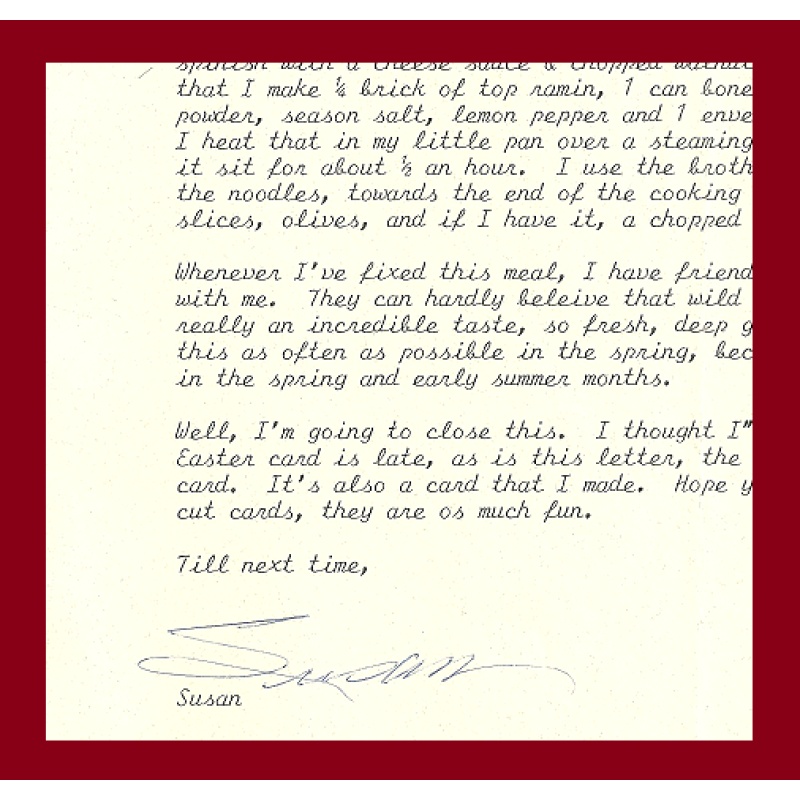 spinish with a cheese sauce & chopped
that I make ¼ brick of top ramin, 1 can bone
powder, season salt, lemon pepper and 1 enve
I heat that in my little pan over a steaming
it sit for about ½ an hour. I use the broth
the noodles, towards the end of the cooking
slices, olives, and if I have it, a chopped
Whenever I've fixed this meal, I have friend
with me. They can hardly beleive that wild
really an incredible taste, so fresh, deep g
this as often as possible in the spring, bec
in the spring and early summer months.
Well, I'm going to close this. I thought I"
Easter card is late, as is this letter, the
card. It's also a card that I made. Hope y
cut cards, they are os much fun.
Till next time,
Susan
Susan